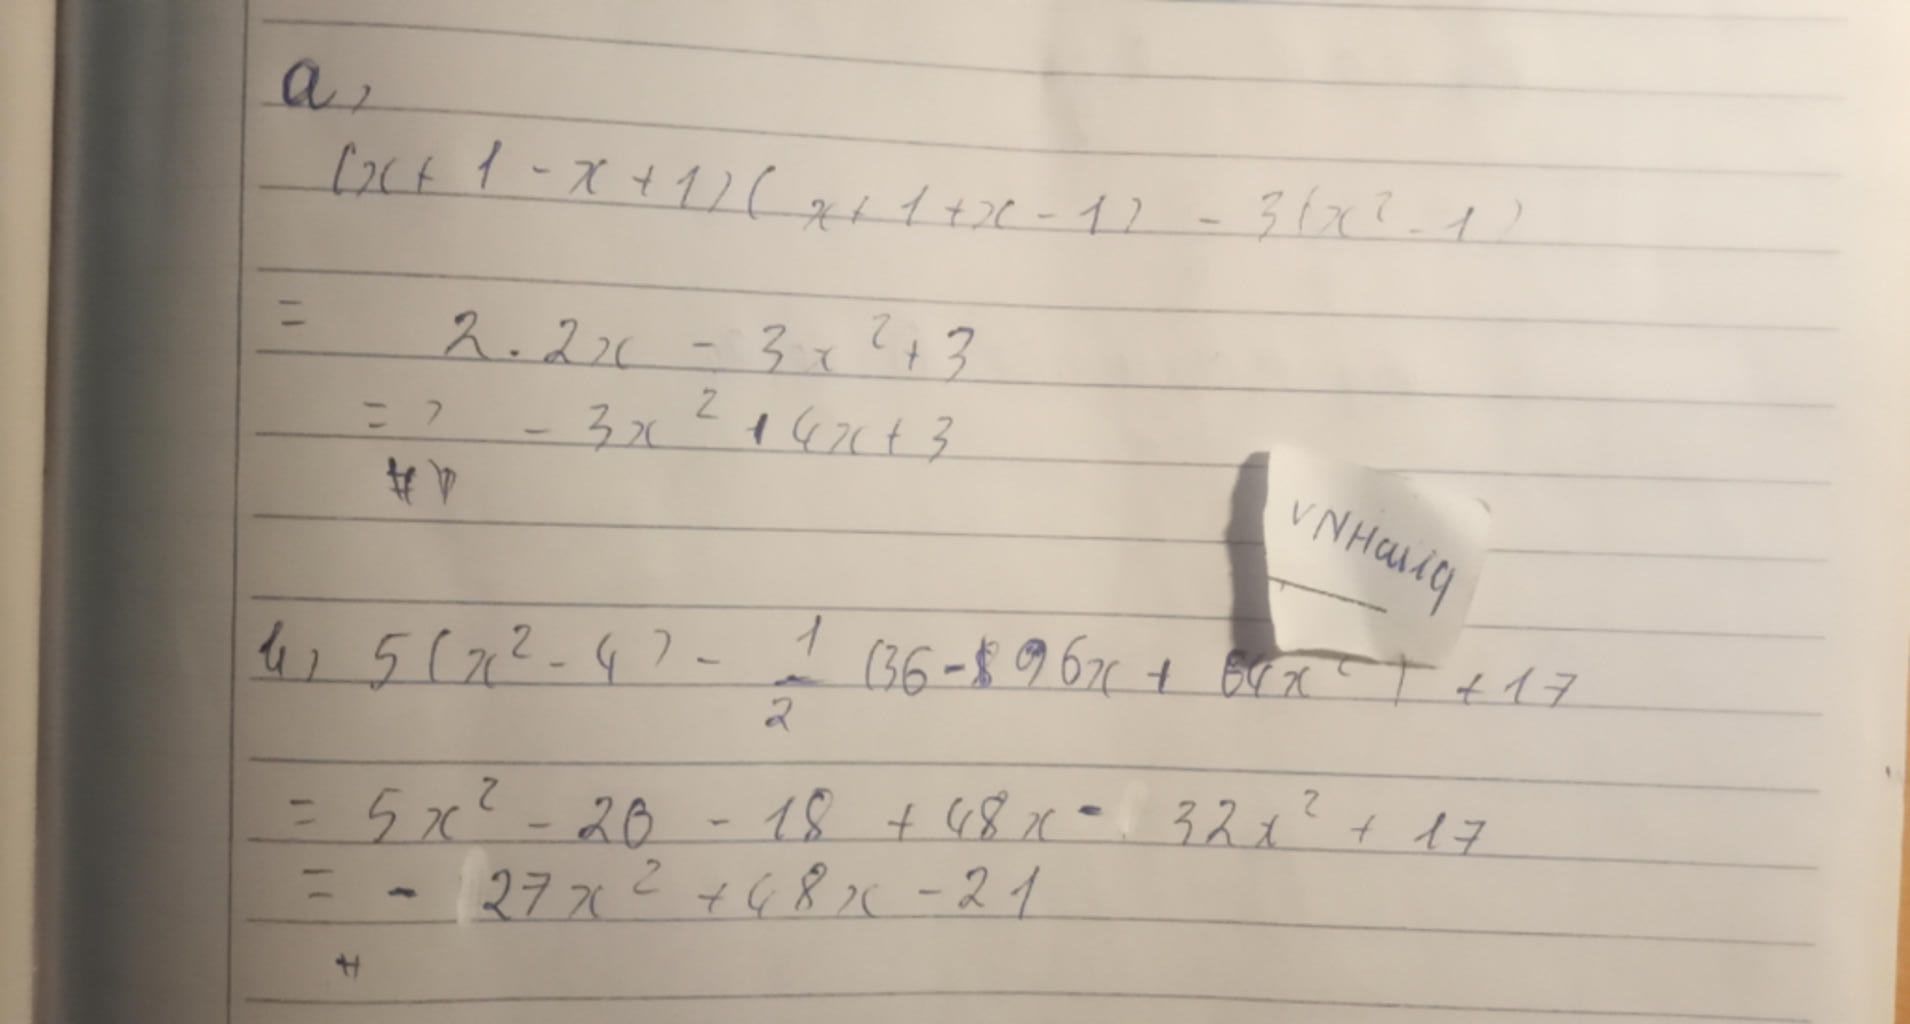 a,
(x+1-x+1)(x+1+x-1) - 3(x²-1)
= 2.2x - 3x²+3
= > - 3x² + 4x+3
#
VNHang
b, 5(x²-4) - 1/2 (36-96x + 64x²) +17
= 5x² - 20 - 18 + 48x - 32x² + 17
= - 27x² +48x -21
#